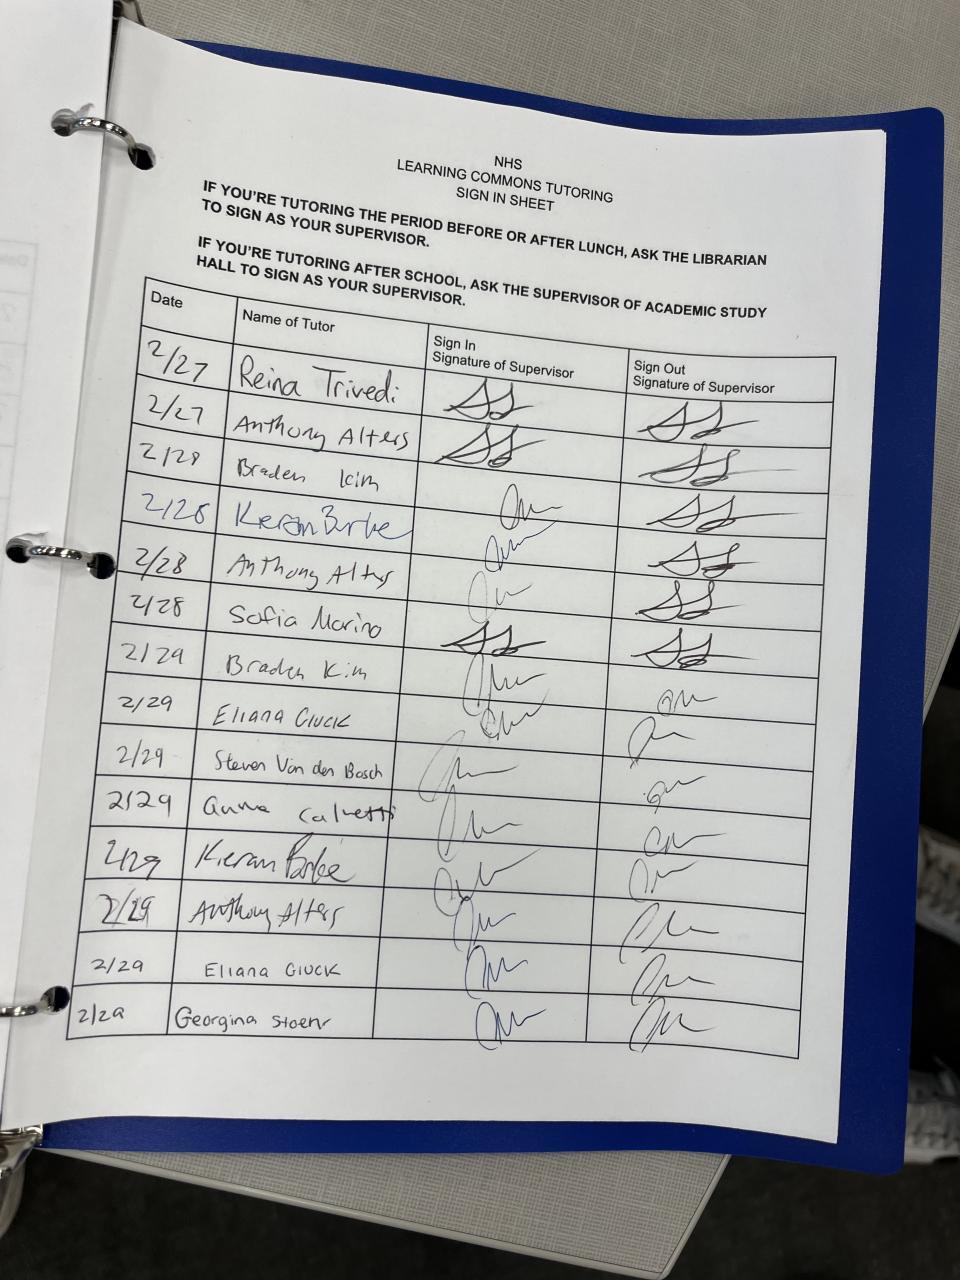 NHS
LEARNING COMMONS TUTORING
SIGN IN SHEET
IF YOU'RE TUTORING THE PERIOD BEFORE OR AFTER LUNCH, ASK THE LIBRARIAN
TO SIGN AS YOUR SUPERVISOR.
IF YOU'RE TUTORING AFTER SCHOOL, ASK THE SUPERVISOR OF ACADEMIC STUDY
HALL TO SIGN AS YOUR SUPERVISOR.
Date Name of Tutor Sign In Sign Out
Signature of Supervisor Signature of Supervisor
2/27 Reina Trivedi
2/27 Anthony Alters
2/28 Braden Kim
2/28 Kieran Burke
2/28 Anthony Alters
2/28 Sofia Marino
2/29 Braden Kim
2/29 Eliana Gluck
2/29 Steven Van den Bosch
2/29 Anna Calvetti
2/29 Kieran Burke
2/29 Anthony Alters
2/29 Eliana Gluck
2/29 Georgina